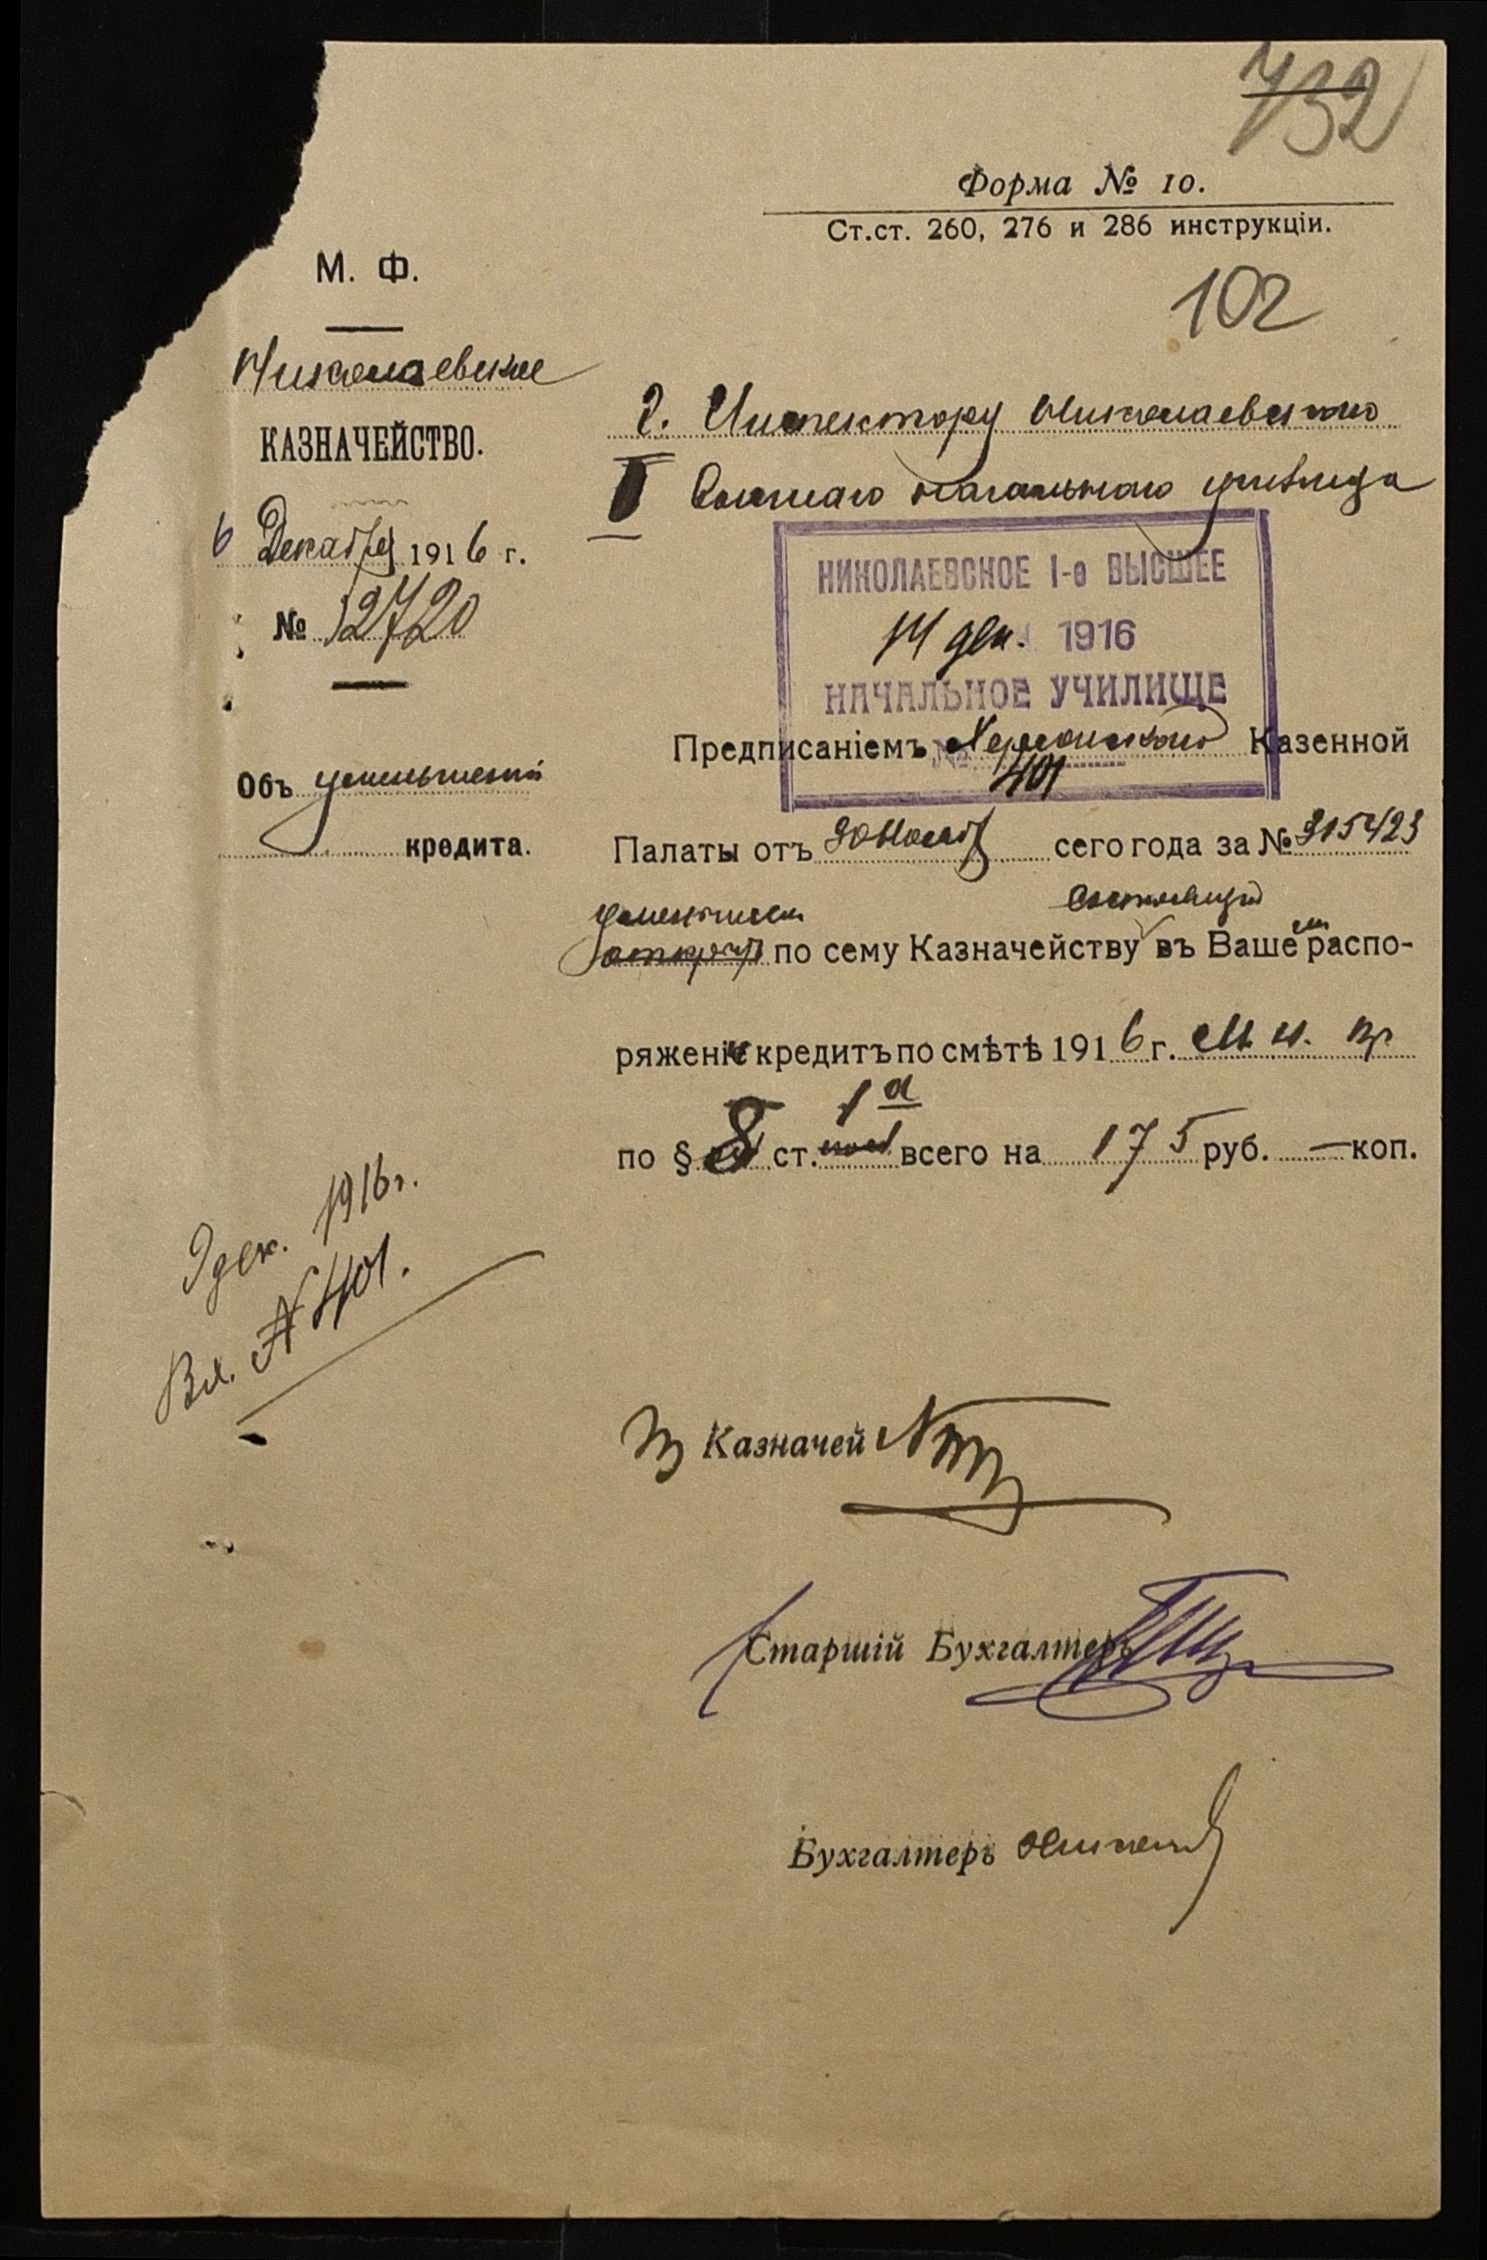 732
Форма № 10.
Ст.ст. 260, 276 и 286 инструкціи.
102
М. Ф.
Николаевское
КАЗНАЧЕЙСТВО.
6 Декабря 1916 г.
№ 12720
Объ уменьшеніи
кредита.
Г. Инспектору Николаевскаго
I Высшаго начальнаго училища
НИКОЛАЕВСКОЕ I-е ВЫСШЕЕ
14 дек. 1916
НАЧАЛЬНОЕ УЧИЛИЩЕ
№ 401
Предписаніемъ Херсонской Казенной
Палаты отъ 30 Нояб сего года за № 315423
уменьшенъ состоящій
открыт по сему Казначейству въ Вашемъ распо-
ряженіи кредитъ по смѣтѣ 1916 г. М. Н. Пр
по § 8 ст. 1а всего на 175 руб. — коп.
9 дек. 1916 г.
Вх. № 401.
Казначей
Старшій Бухгалтеръ
Бухгалтеръ